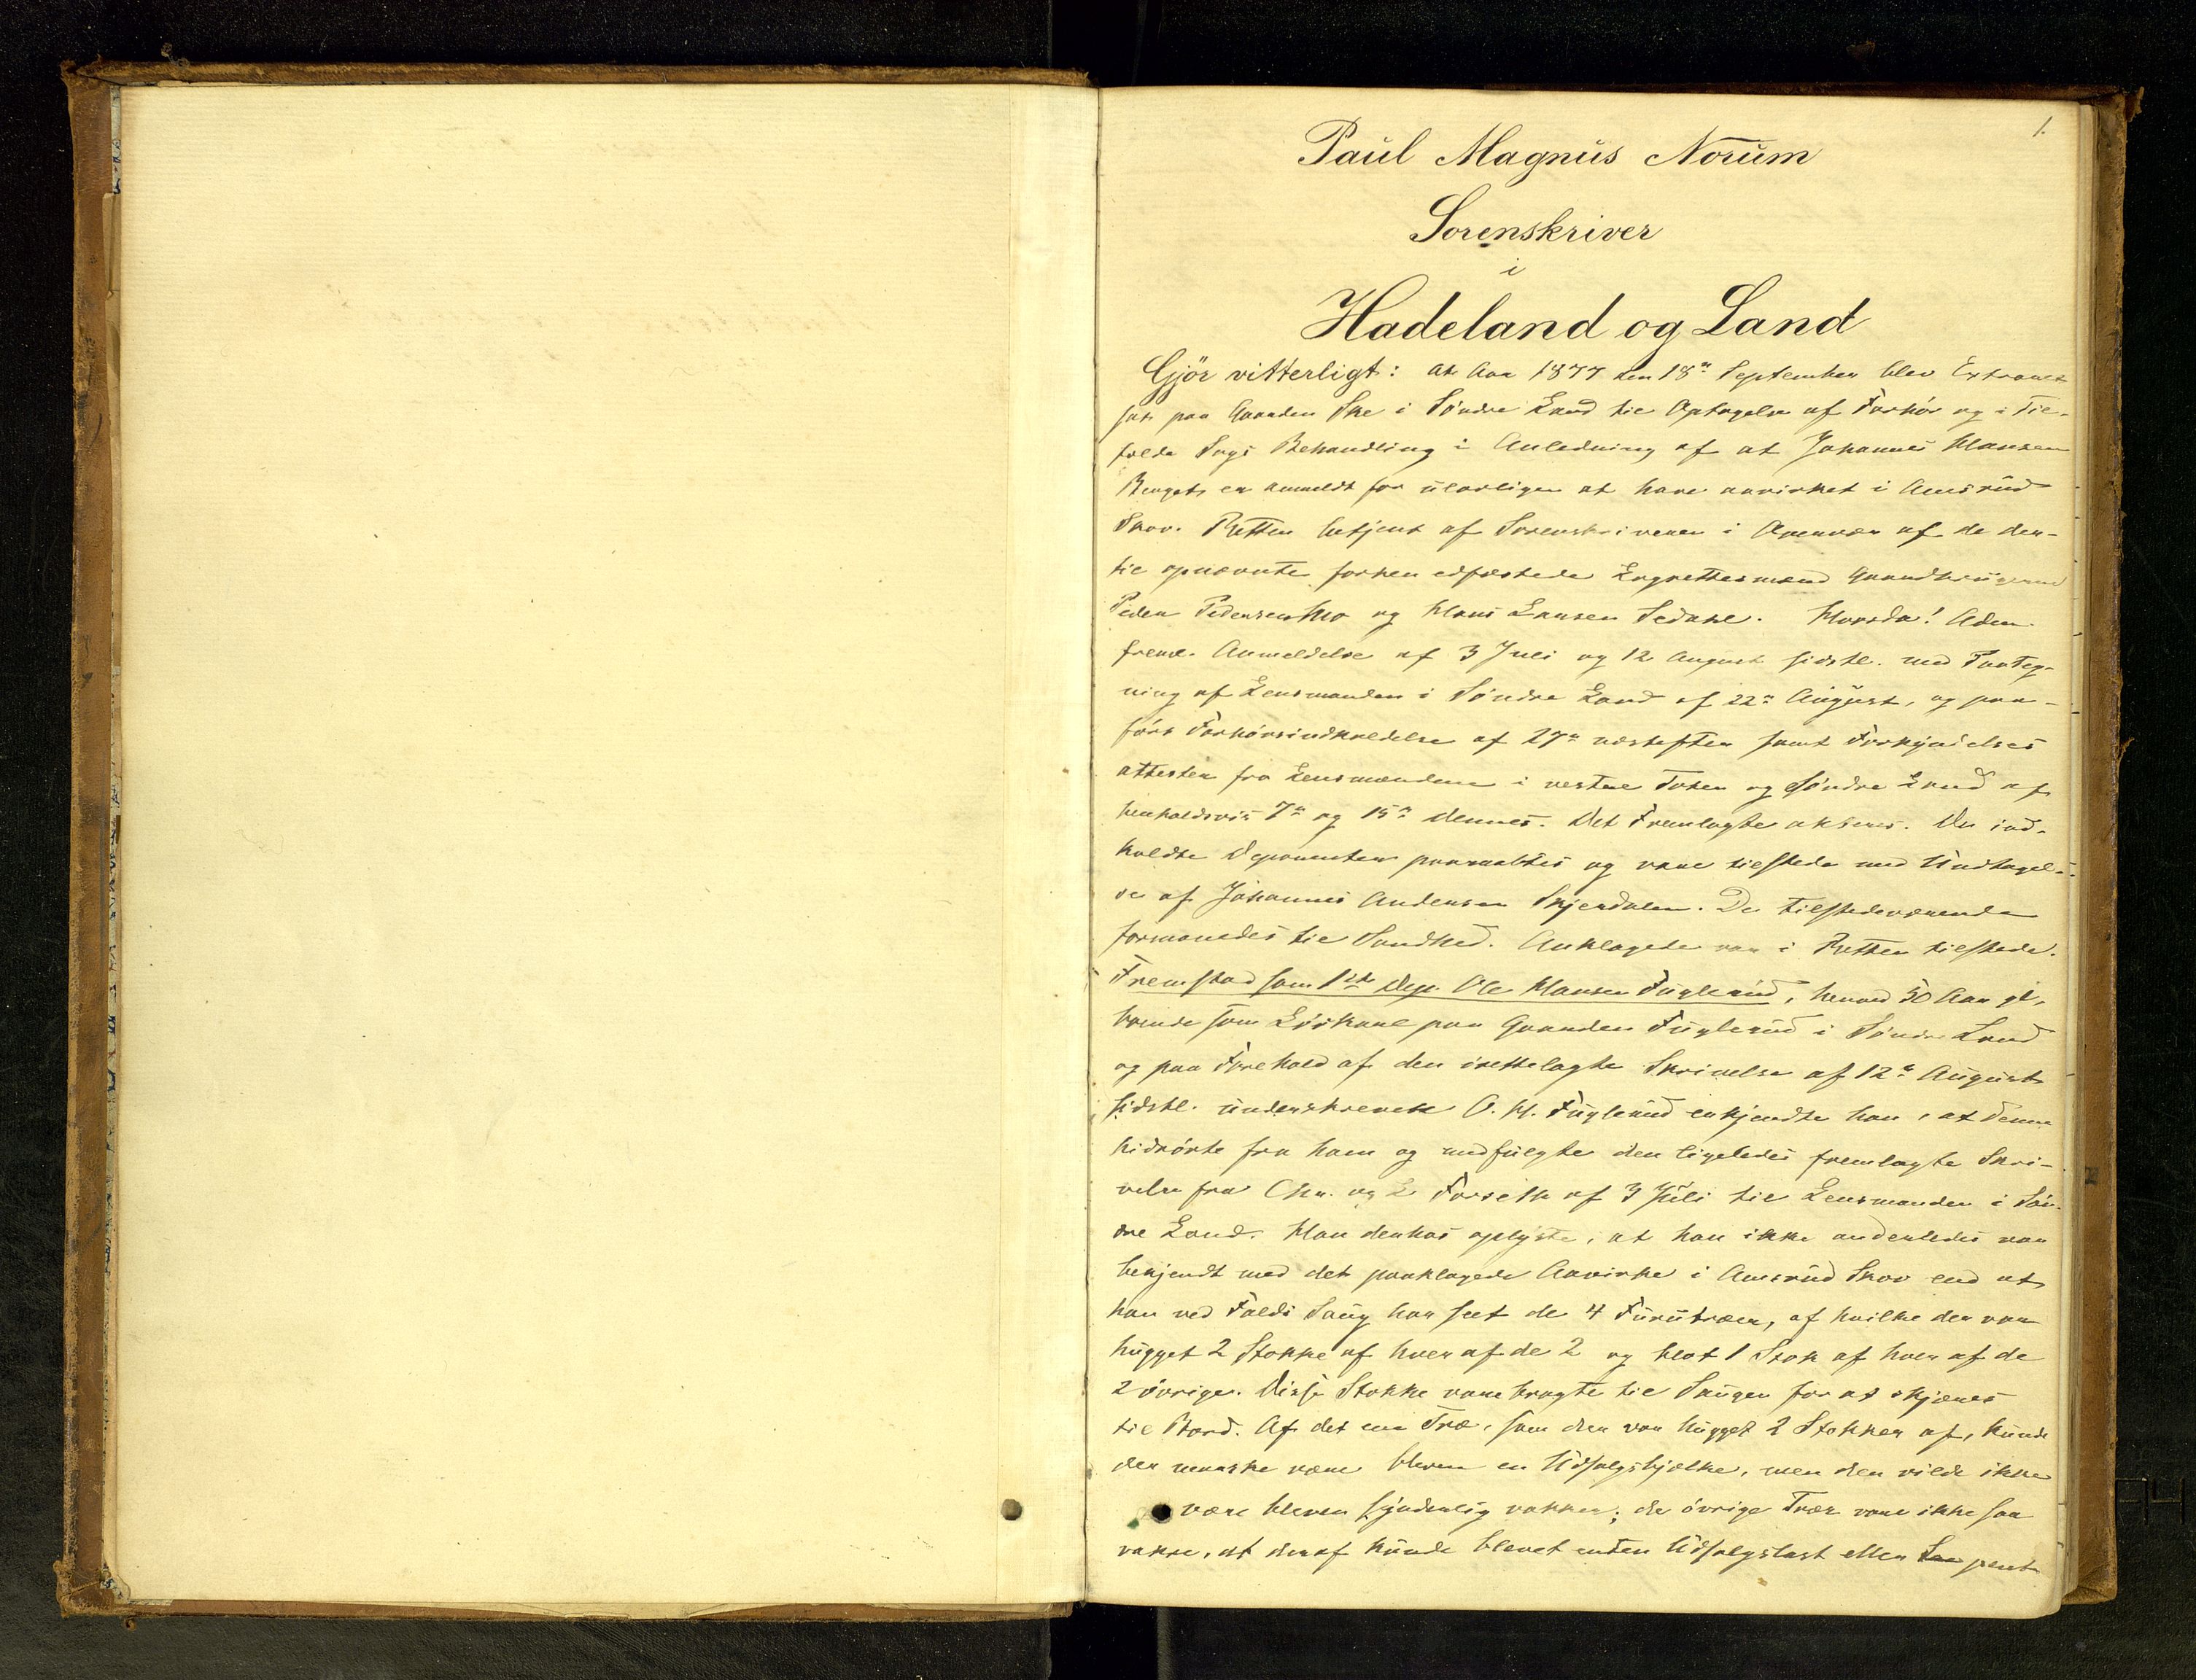 1.
Paul Magnus Norum
Sorenskriver
i
Hadeland og Land
Gjör vitterligt: at Aar 1877 den 18de September blev Extraret
sat paa Gaarden Ske i Söndre Land til Optagelse af Forhör og i Til-
fælde Sags Behandling i Anledning af at Johannes Hansen
er anmeldt for ulovligen at have aavirket i Amsrud
Skov. Retten betjent af Sorenskriveren i Overvær af de der-
til opnævnte forhen edfæstede Lagrettesmænd Gaardbrugerne
Peder Pedersen Mo og Hans Larsen Sedahl. Hvorda! Adm.
freml. Anmeldelse af 3 Juli og 12 August sidstl. med Paateg-
ning af Lensmanden i Söndre Land af 22de August, og paa-
fört Forhörsindkaldelse af 27de næstefter samt Forkyndelses
attester fra Lensmændene i vestre Toten og Söndre Land af
henholdsvis 7de og 15de dennes. Det Fremlagte akteres. De ind-
kaldte Deponenter paaraabtes og vare tilstede med Undtagel-
se af Johannes Andersen Skjerdalen. De tilstedeværende
formanedes til Sandhed. Anklagede var i Retten tilstede.
Fremstod som 1ste Dep. Ole Hansen Fuglerud, henved 50 Aar gl.,
boende som Löskarl paa Gaarden Fuglerud i Söndre Land
og paa Forehold af den irettelagte Skrivelse af 12te August
sidstl. underskrevet O. H. Fuglerud erkjendte han, at denne
hidrörte fra ham og medfulgte den ligeledes fremlagte Skri-
velse fra Chr. og L Forseth af 3 Juli til Lensmanden i Sön-
dre Land. Han derhos oplyste, at han ikke anderledes var
bekjendt med det paaklagede Aavirke i Amsrud Skov end at
han ved Falds Saug har seet de 4 Furutræer, af hvilke der var
hugget 2 Stokke af hver af de 2 og blot 1 Stok af hver af de
2 övrige. Disse Stokke vare bragte til Saugen for at skjæres
til Bord. Af det ene Træ, som der var hugget 2 Stokker af, kunde
der maaske være bleven en Udsalgsbjælke, men den vilde ikke
være bleven synderlig vakker; de övrige Trær vare ikke saa
vakre, at deraf kunde blevet enten Udsalgslast eller saa pent